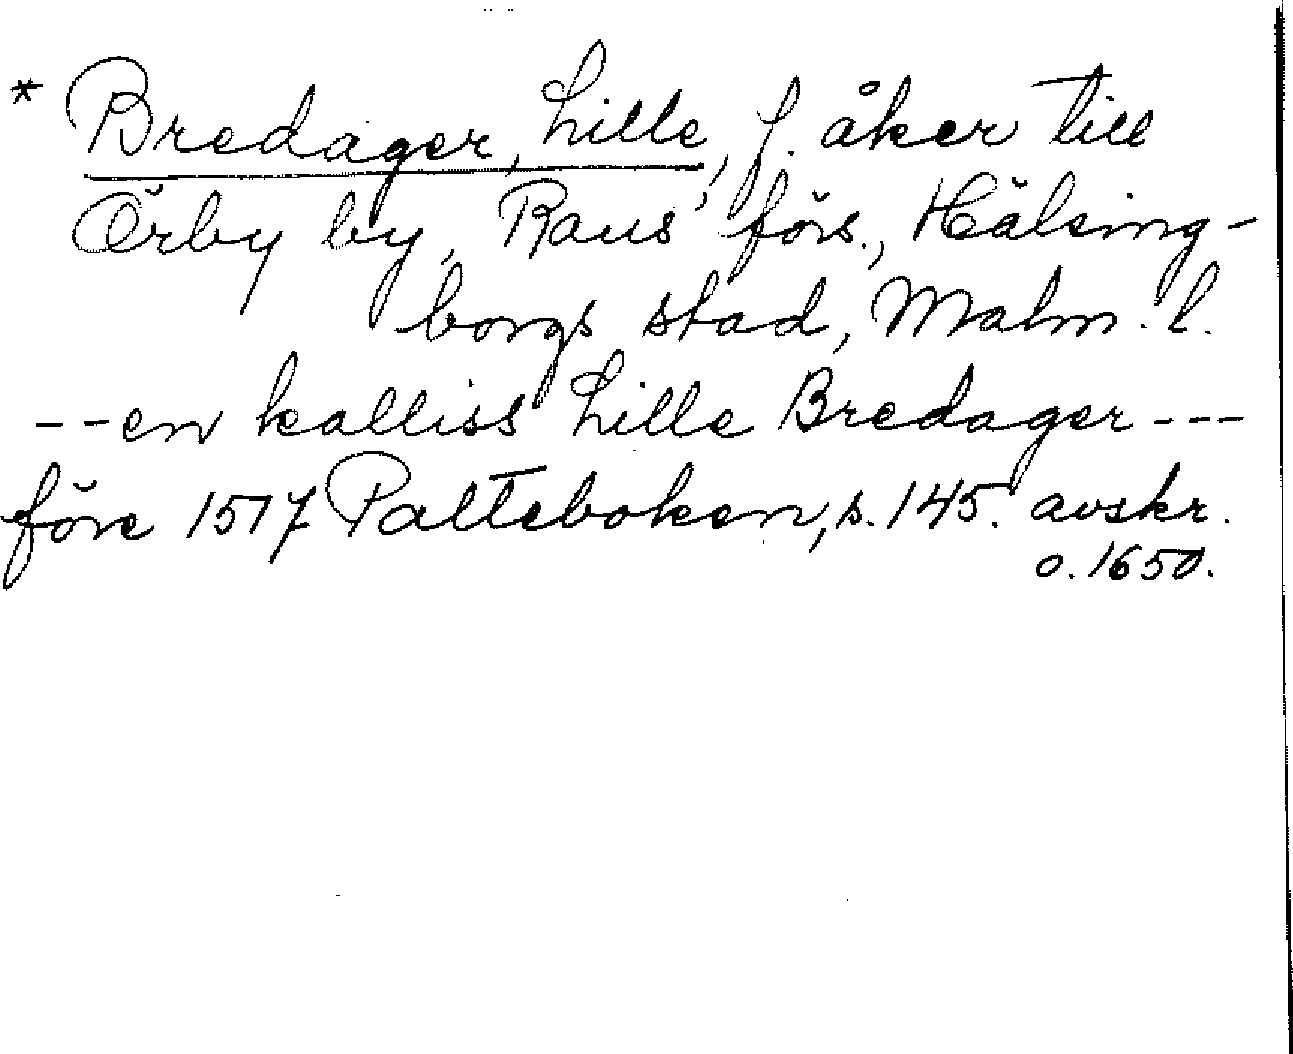 * Bredager, Lille, f. åker till
Örby by, Raus förs., Hälsing-
borgs stad, Malm. l.
--en kalliss Lille Bredager---
före 1517 Palteboken, s. 145. avskr.
o. 1650.